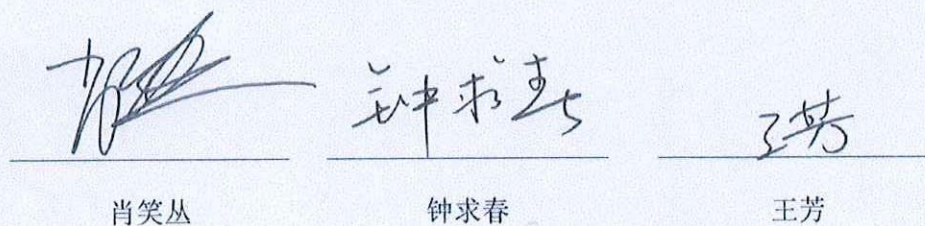 肖笑丛 钟求春 王芳
肖笑丛 钟求春 王芳